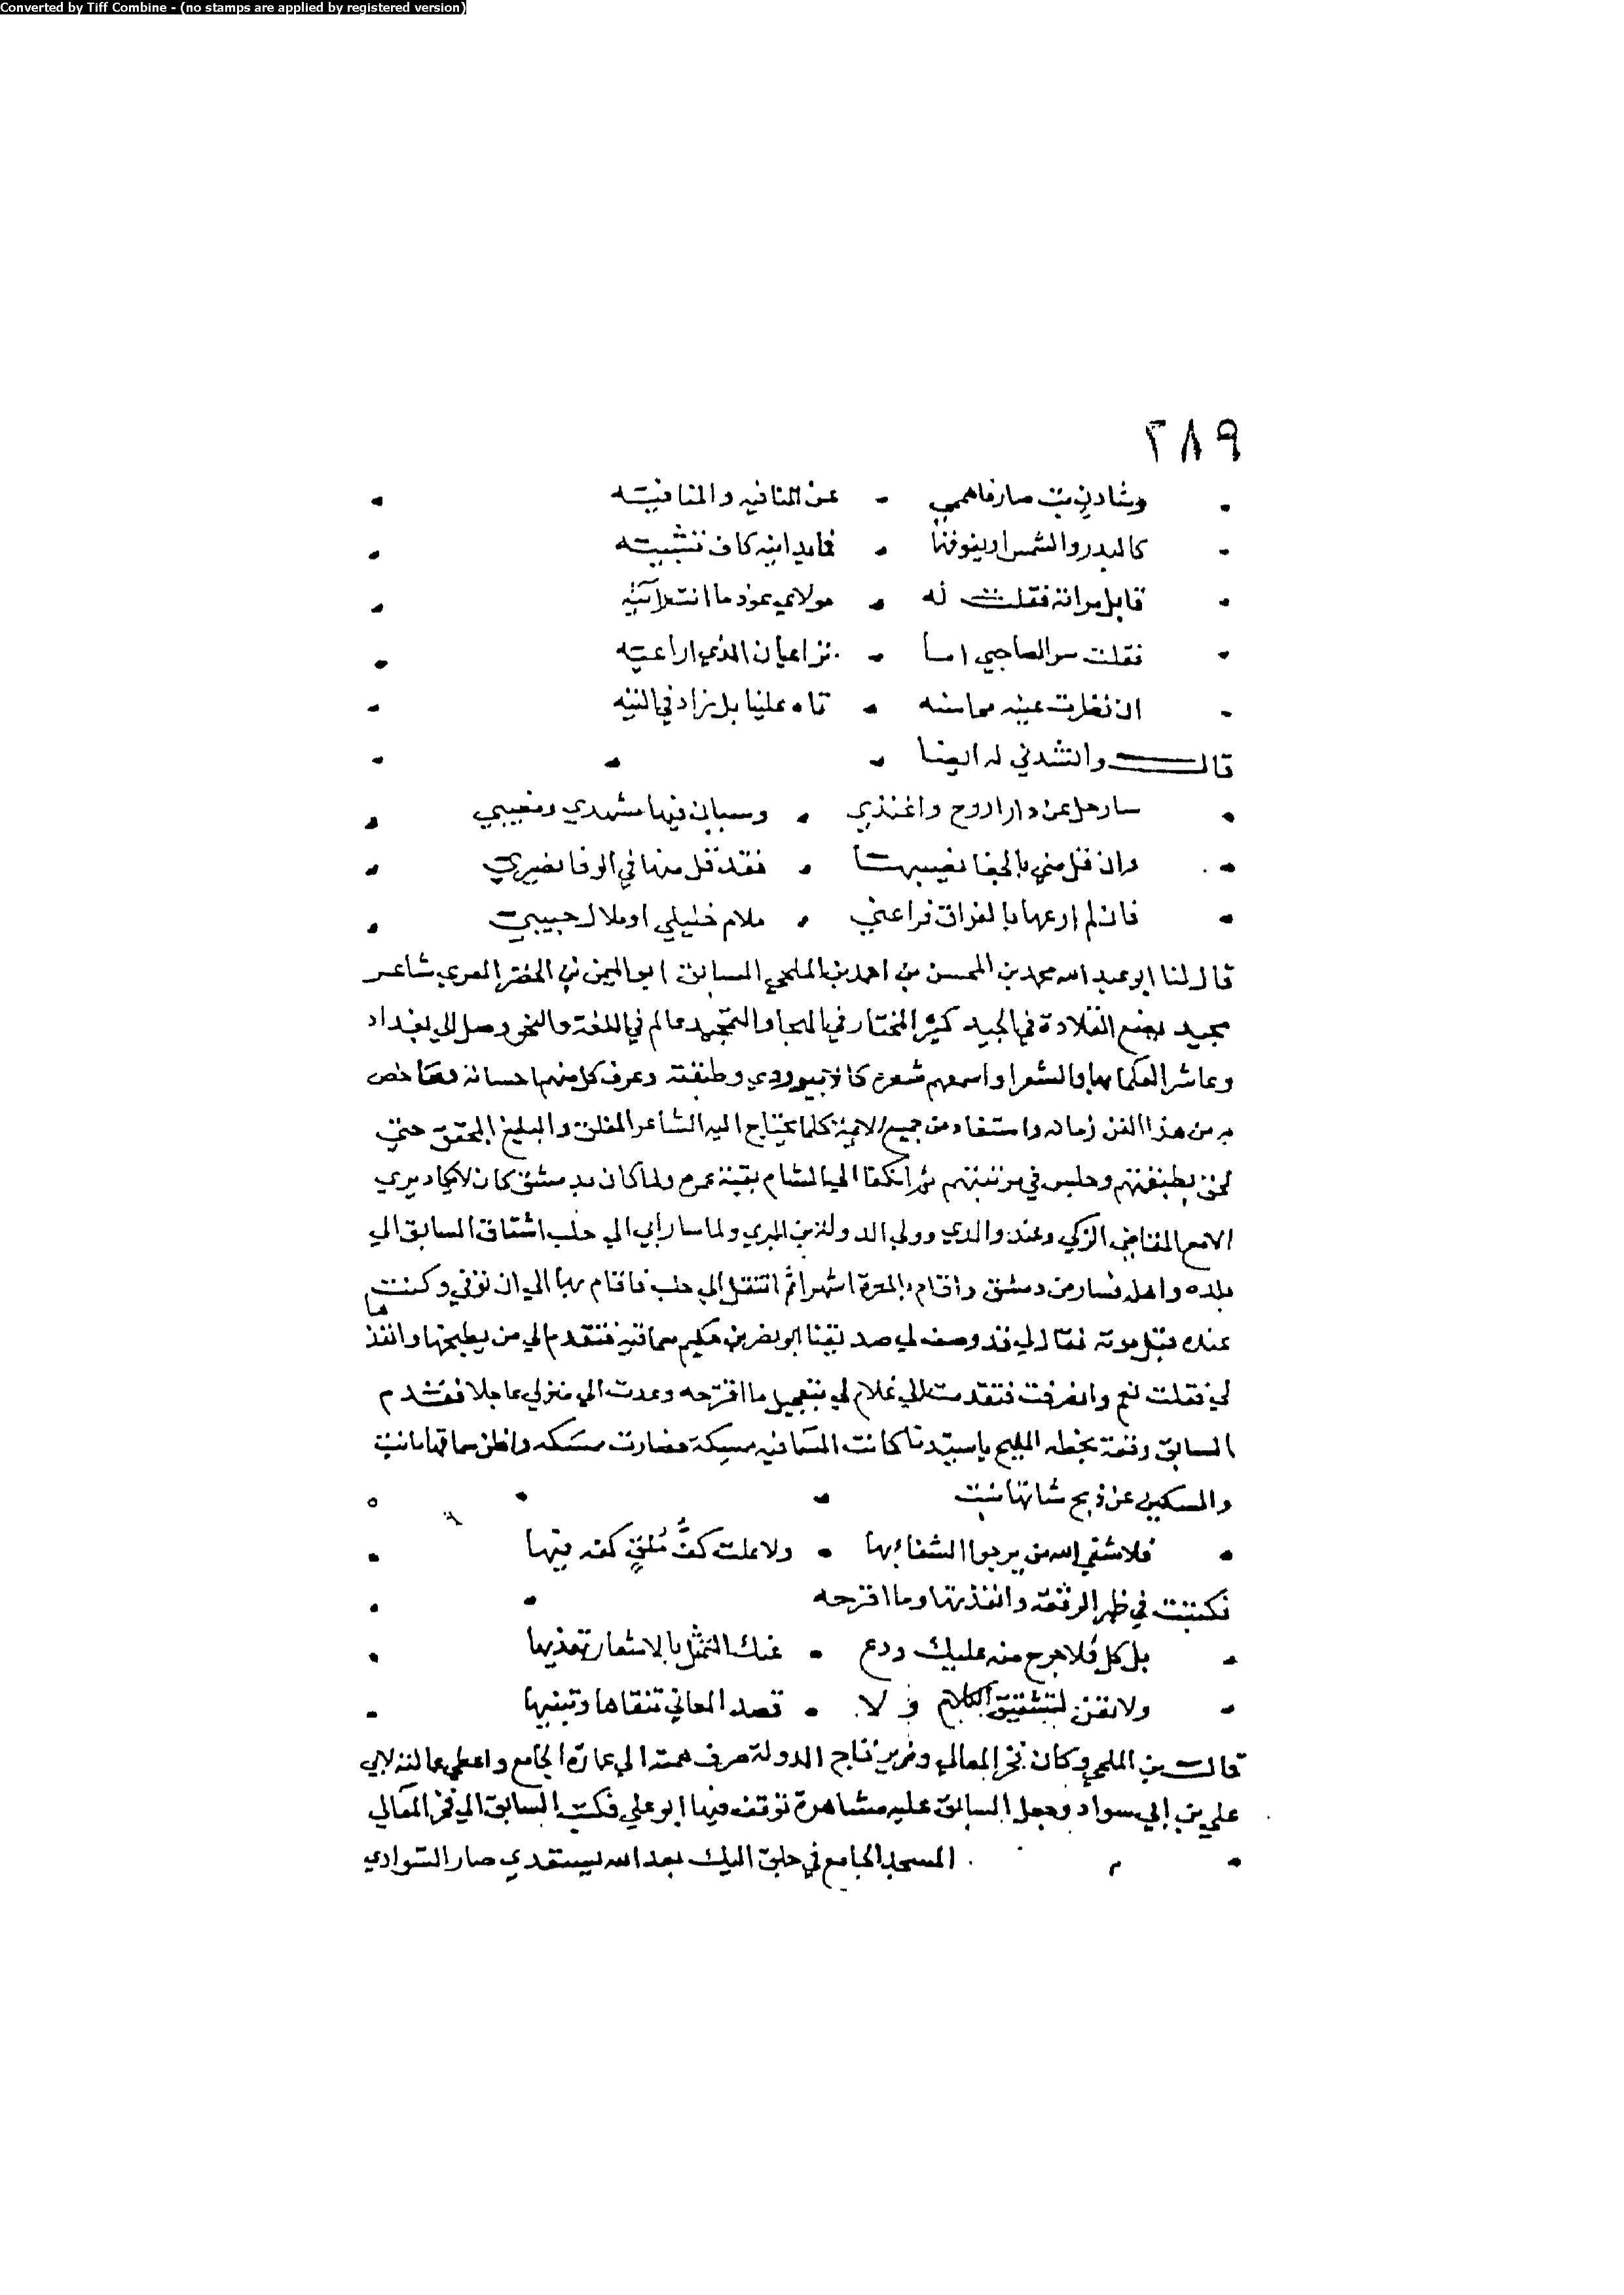 Converted by Tiff Combine - (no stamps are applied by registered version)
٢٨٩
وشادن بت صارفاهمي عن المنافيه والمنافيته
كالبدر والشمس اوينوفنا فابدانيه كاف تشبيته
قابل مراته فقلت له مولاي عوذ ما انت رآئيه
فقلت سر الصاحبي اما تراعيان الذي اراعيه
ان نظرت عينه محاسنه تاه علينا بل زاد في التيه
قال وانشدني له ايضا
سارحل عن دار اروح واغتذي وسيان فيها مشهدي ومغيبي
وان قل مني بالجفا نصيبها فقد قل منها في الوفا نصيبي
فان لم ارعها بالفراق فراعني ملام خليلي او ملال حبيبي
قال لنا ابو عبد الله محمد بن المحسن بن احمد بن الملحي السابق ابو اليمن بن الخضر المعري شاعر
مجيد يضع القلادة في الجيد كثير المختار في الهجا والتمجيد عالم في اللغة والنحو وصل الى بغداد
وعاشر الحكما بها والشعرا واسمعهم شعره كالابيوردي وطبقته وعرف كل منهم احسانه خص
به من هذا الفن زمانه واستفاد من جميع الايمة كلما يحتاج اليه الشاعر المفلق والبليغ المحقق حتى
لحق بطبقتهم وجلس في مرتبتهم ثم انكفا الى الشام بقية عمره ولما كان بدمشق كان لا يكاد يري
الا مع القاضي الزكي وعند والدي وولي الدولة بن البري ولما سار ابي الى حلب اشتاق السابق الي
بلده واهله فسار من دمشق واقام بالمعرة اشهرا ثم انتقل الي حلب فاقام بها الي ان توفي وكنت
عنده قبل موته فقال لي قد وصف لي صديقنا ابو نصر بن حكيم سماقيه فتقدم لي من يطبخها وانفذها
لي فقلت نعم وانصرفت فتقدمت الي غلام لي بتعجيل ما اقترحه وعدت الي منزلي عاجلا فقدم
السابق رقعة بخطه المليح يا سيدنا كانت السماقيه مسكة فصارت مسكه واظن سماقها ما نبت
والسكين عن ذبح شاتها نبت
فلا شفي الله من يرجوا الشفا بها ولا علت كفُّ مُلقٍ كفه فيها
فكتبت في ظهر الرقعة وانفذتها وما اقترحه
بل كل فلا حرج منه عليك ودع عنك التمثل بالاشعار تهذيها
ولا تعن لتشقيق الكلام ولا قصد المعاني تنقاها وتبغيها
قال بن الملحي وكان فخر المعالي وزير تاج الدولة صرف همته الي عمارة الجامع واعطى عمالته لابي
علي بن ابي سواد وجعل السابق عليه مشاهرة توقف فيها ابو علي فكتب السابق الى فخر المعالي
المسجد الجامع في جلق اليك بعد الله يستعدي صار السوادي